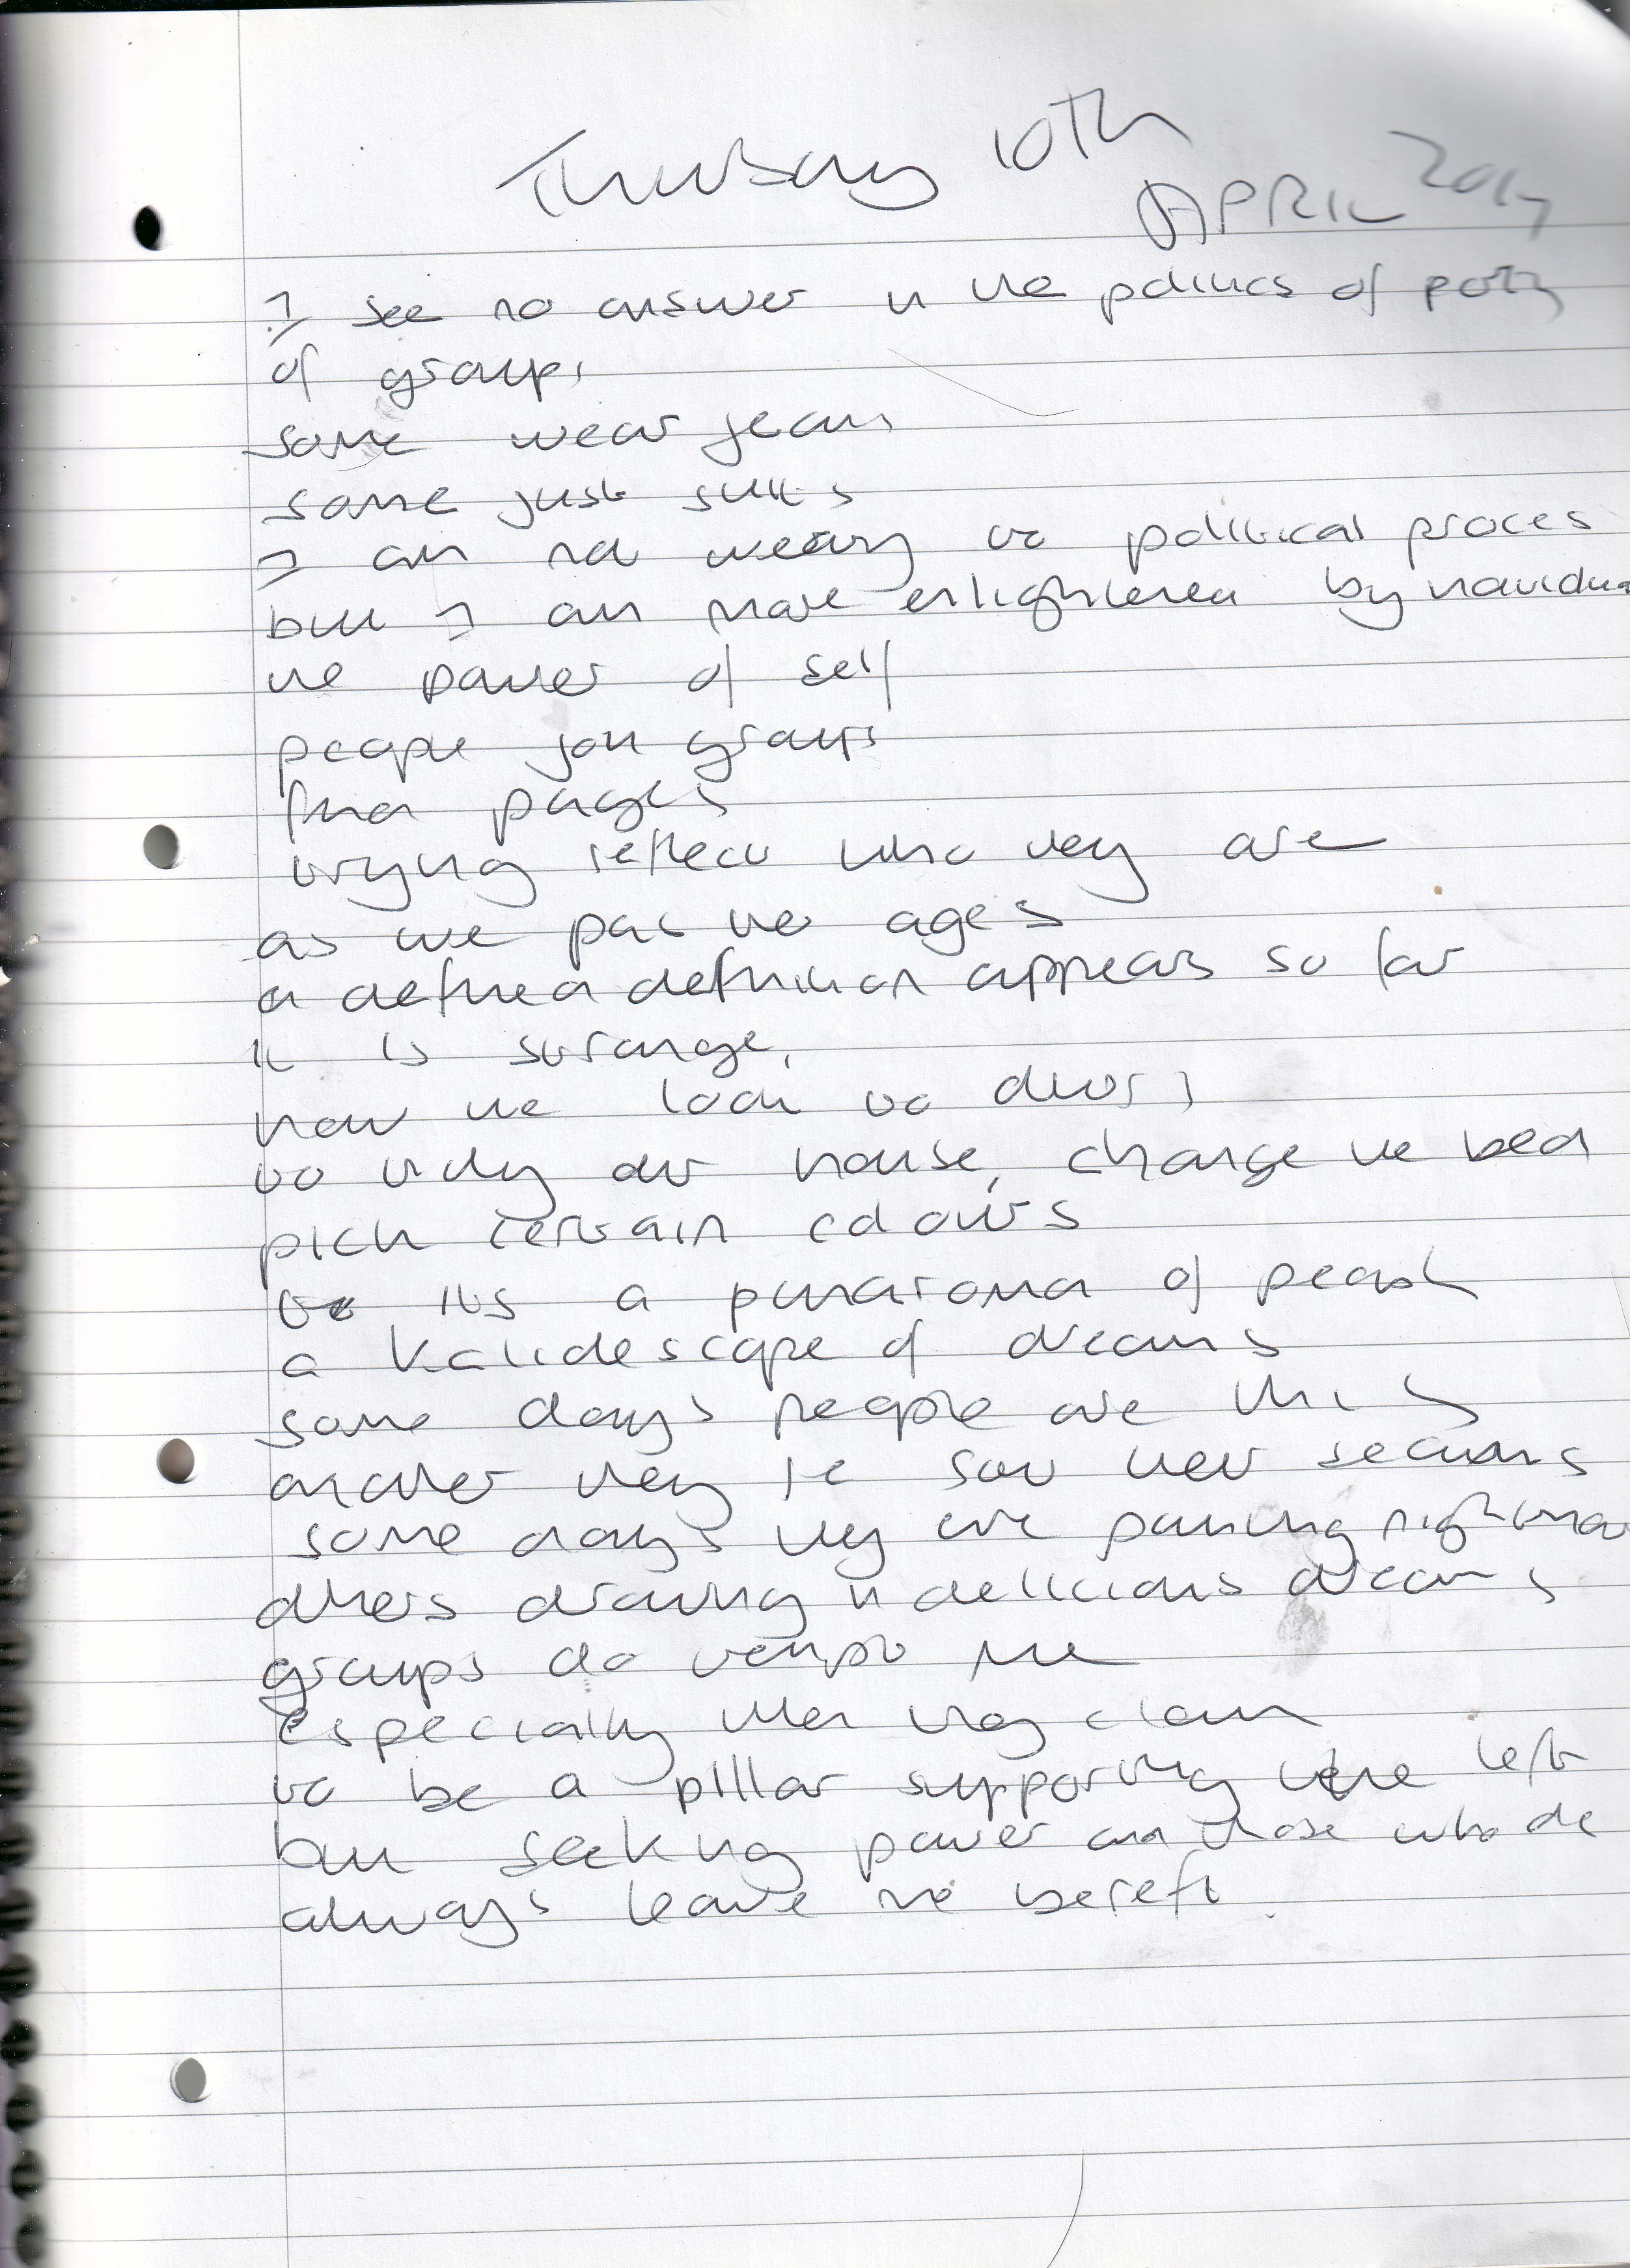 Thursday 10th
APRIL 2014
I see no answer in the politics of party
of groups
some wear jeans
some just suits
I am not weary to political proces
but I am more enlightened by individua
the power of self
people join groups
find pages
trying reflect who they are
as we pas the ages
a defined definition appears so far
it is strange,
how we look to others
to tidy our house, change the bed
pick certain colours
its a panarama of peach
a kalidescope of dreams
some days people are this
another they sew their seams
some days they are painting nightma
others drawing in delicious dreams
groups do tempt me
especially when they claim
to be a pillar supporting the left
but seeking power and those who do
always leave me bereft.